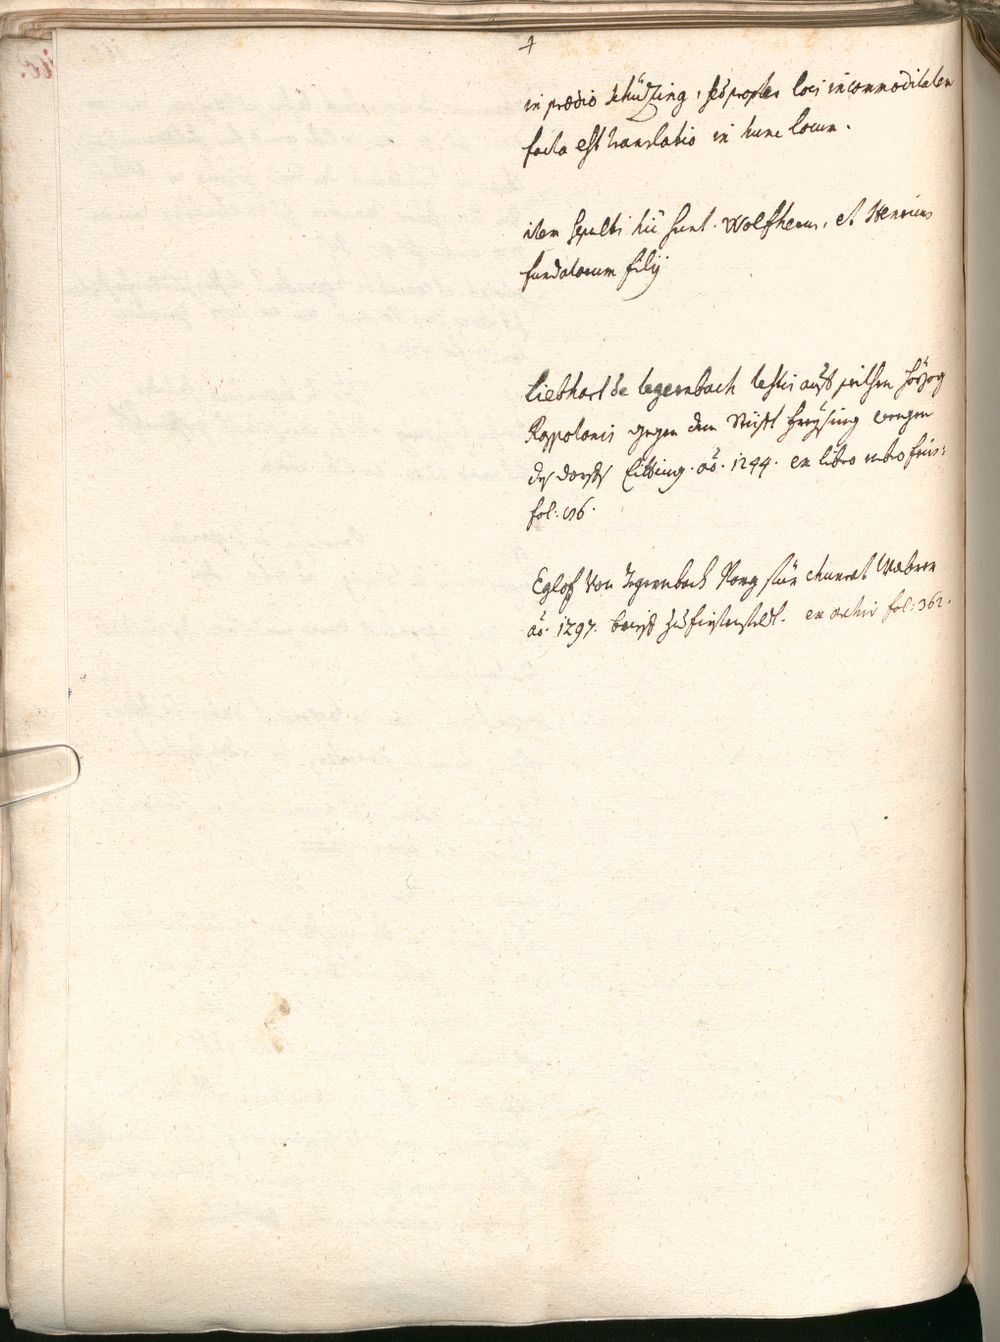 4
in prædio Schützing, sed propter loci incommoditatem
facta est translatio in hunc locum.
item sepulti hii sunt. Wolfherus, et Henricus
fundatorum filij
Liebhart de Tegernbach testis auß seithen Herzog
Rappolonis gegen dem Stifft Freysing wegen
deß dorfs Eitting. ao. 1244. ex libro rubro fris:
fol: 86.
Eglof von Tegernbach Porg für Chunrat
ao. 1297. brieff zu Firstenfeldt. ex archiv fol: 362.